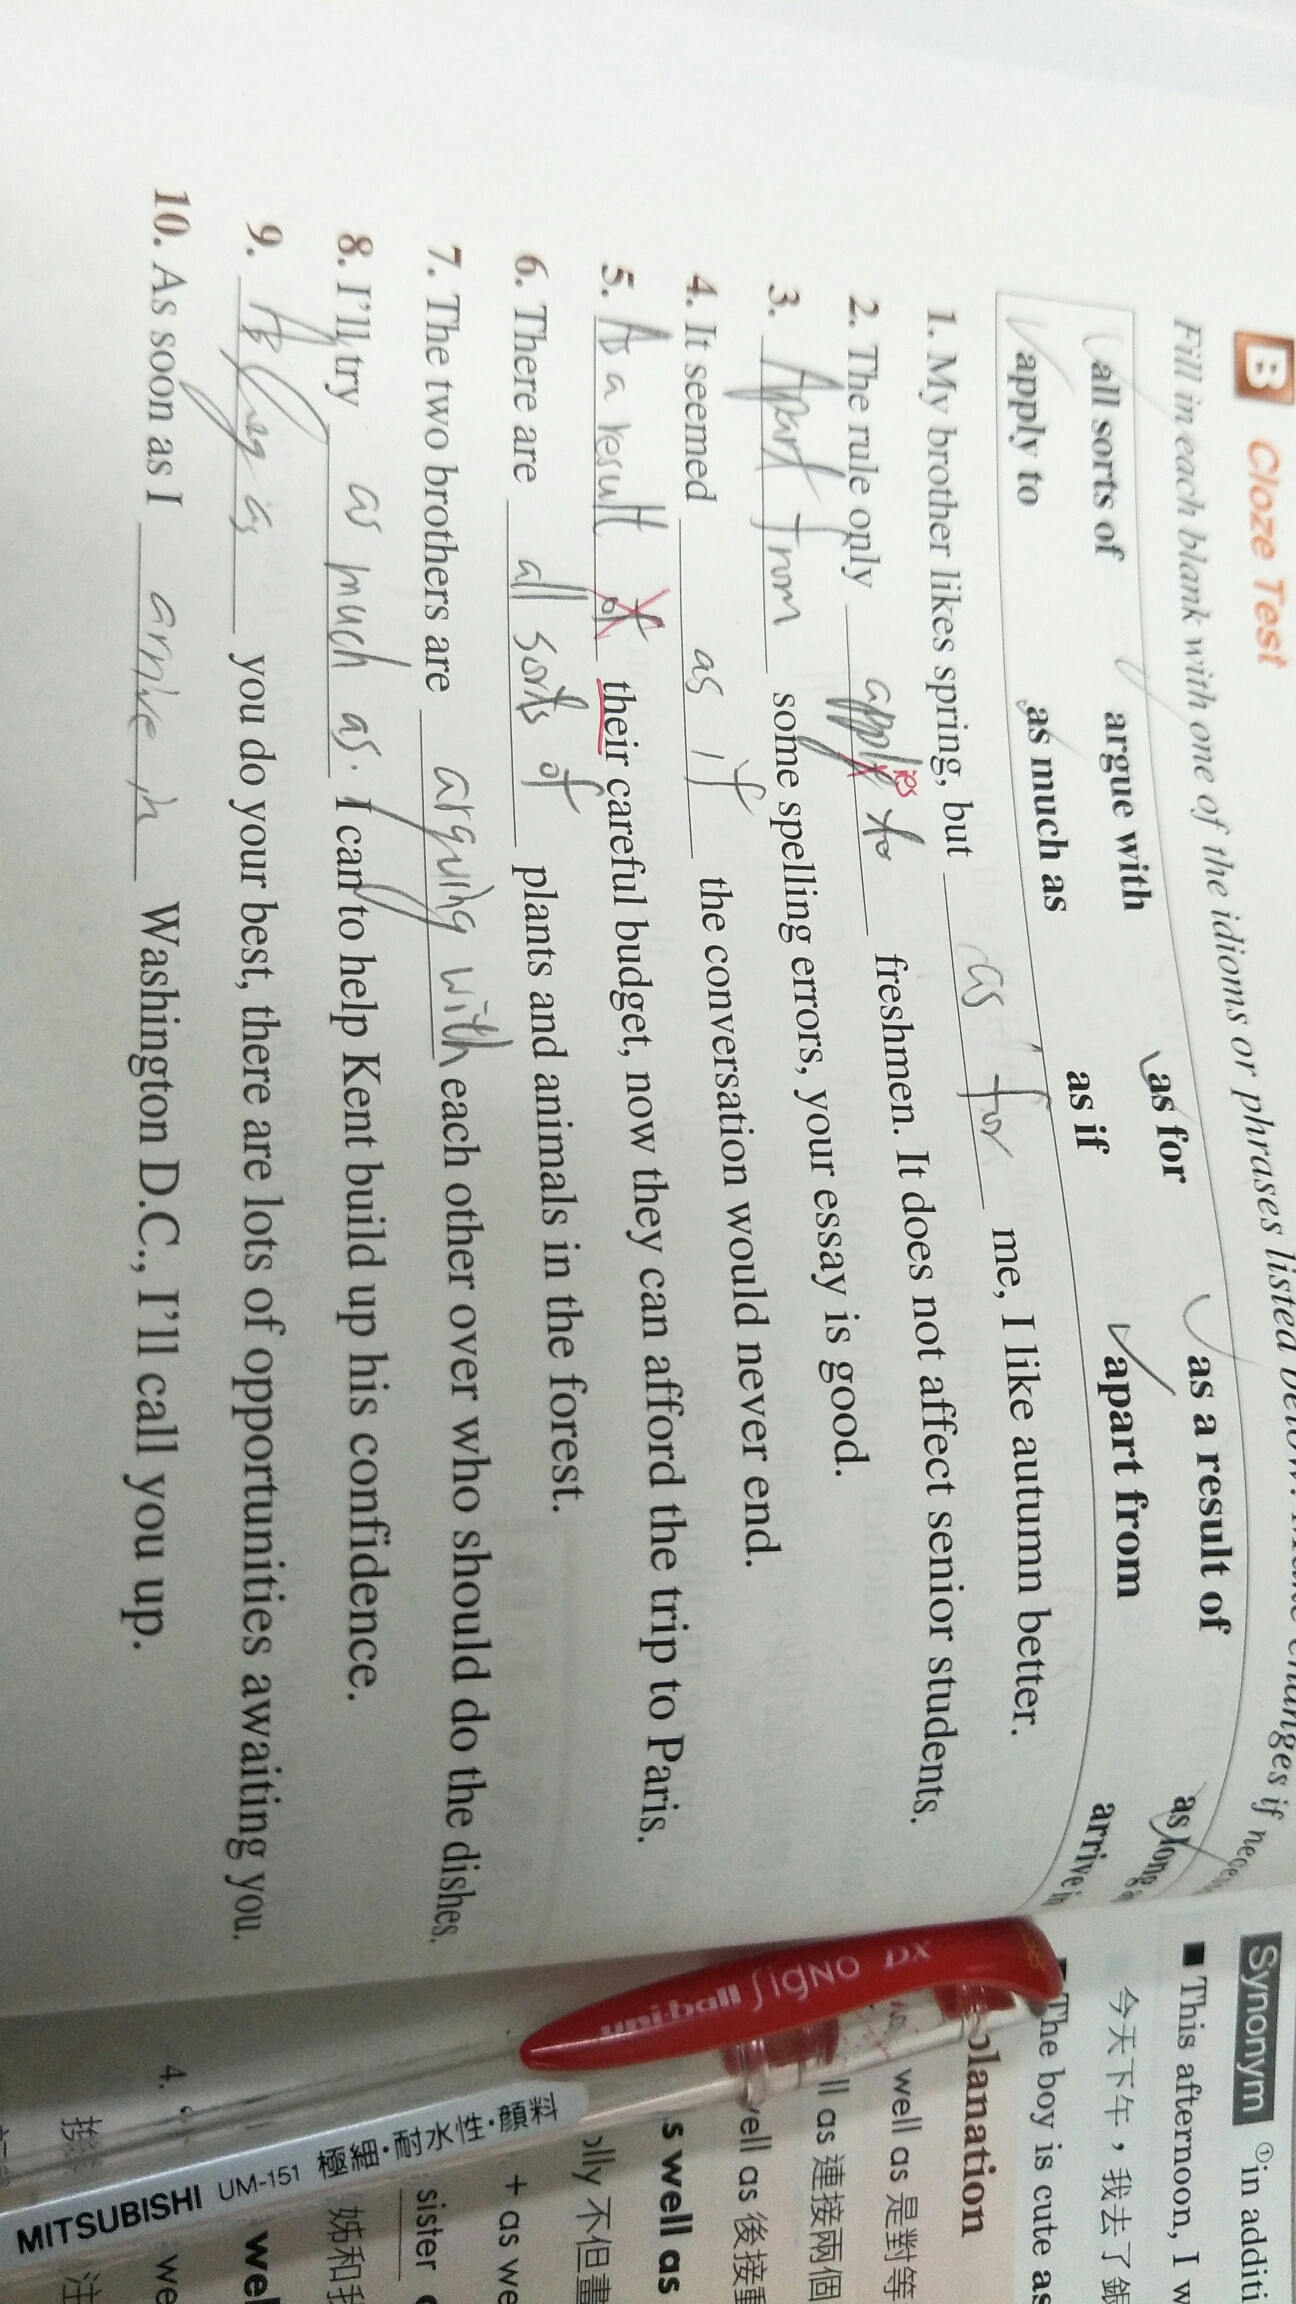 B Cloze Test
Fill in each blank with one of the idioms or phrases listed below. Make changes if
all sorts of argue with as for as a result of as long
apply to as much as as if apart from arrive in
1. My brother likes spring, but as for me, I like autumn better.
2. The rule only applies to freshmen. It does not affect senior students.
3. Apart from some spelling errors, your essay is good.
4. It seemed as if the conversation would never end.
5. As a result of their careful budget, now they can afford the trip to Paris.
6. There are all sorts of plants and animals in the forest.
7. The two brothers are arguing with each other over who should do the dishes.
8. I'll try as much as I can to help Kent build up his confidence.
9. As long as you do your best, there are lots of opportunities awaiting you.
10. As soon as I arrive in Washington D.C., I'll call you up.
Synonym ①in additi
■ This afternoon, I w
今天下午，我去了銀
The boy is cute as
planation
well as 是對等
ll as 連接兩個
ell as 後接
s well as
olly 不但畫
+ as we
sister
姊和我
wel
4.
we
注
uni-ball SigNO DX
MITSUBISHI UM-151 極細・耐水性・顔料